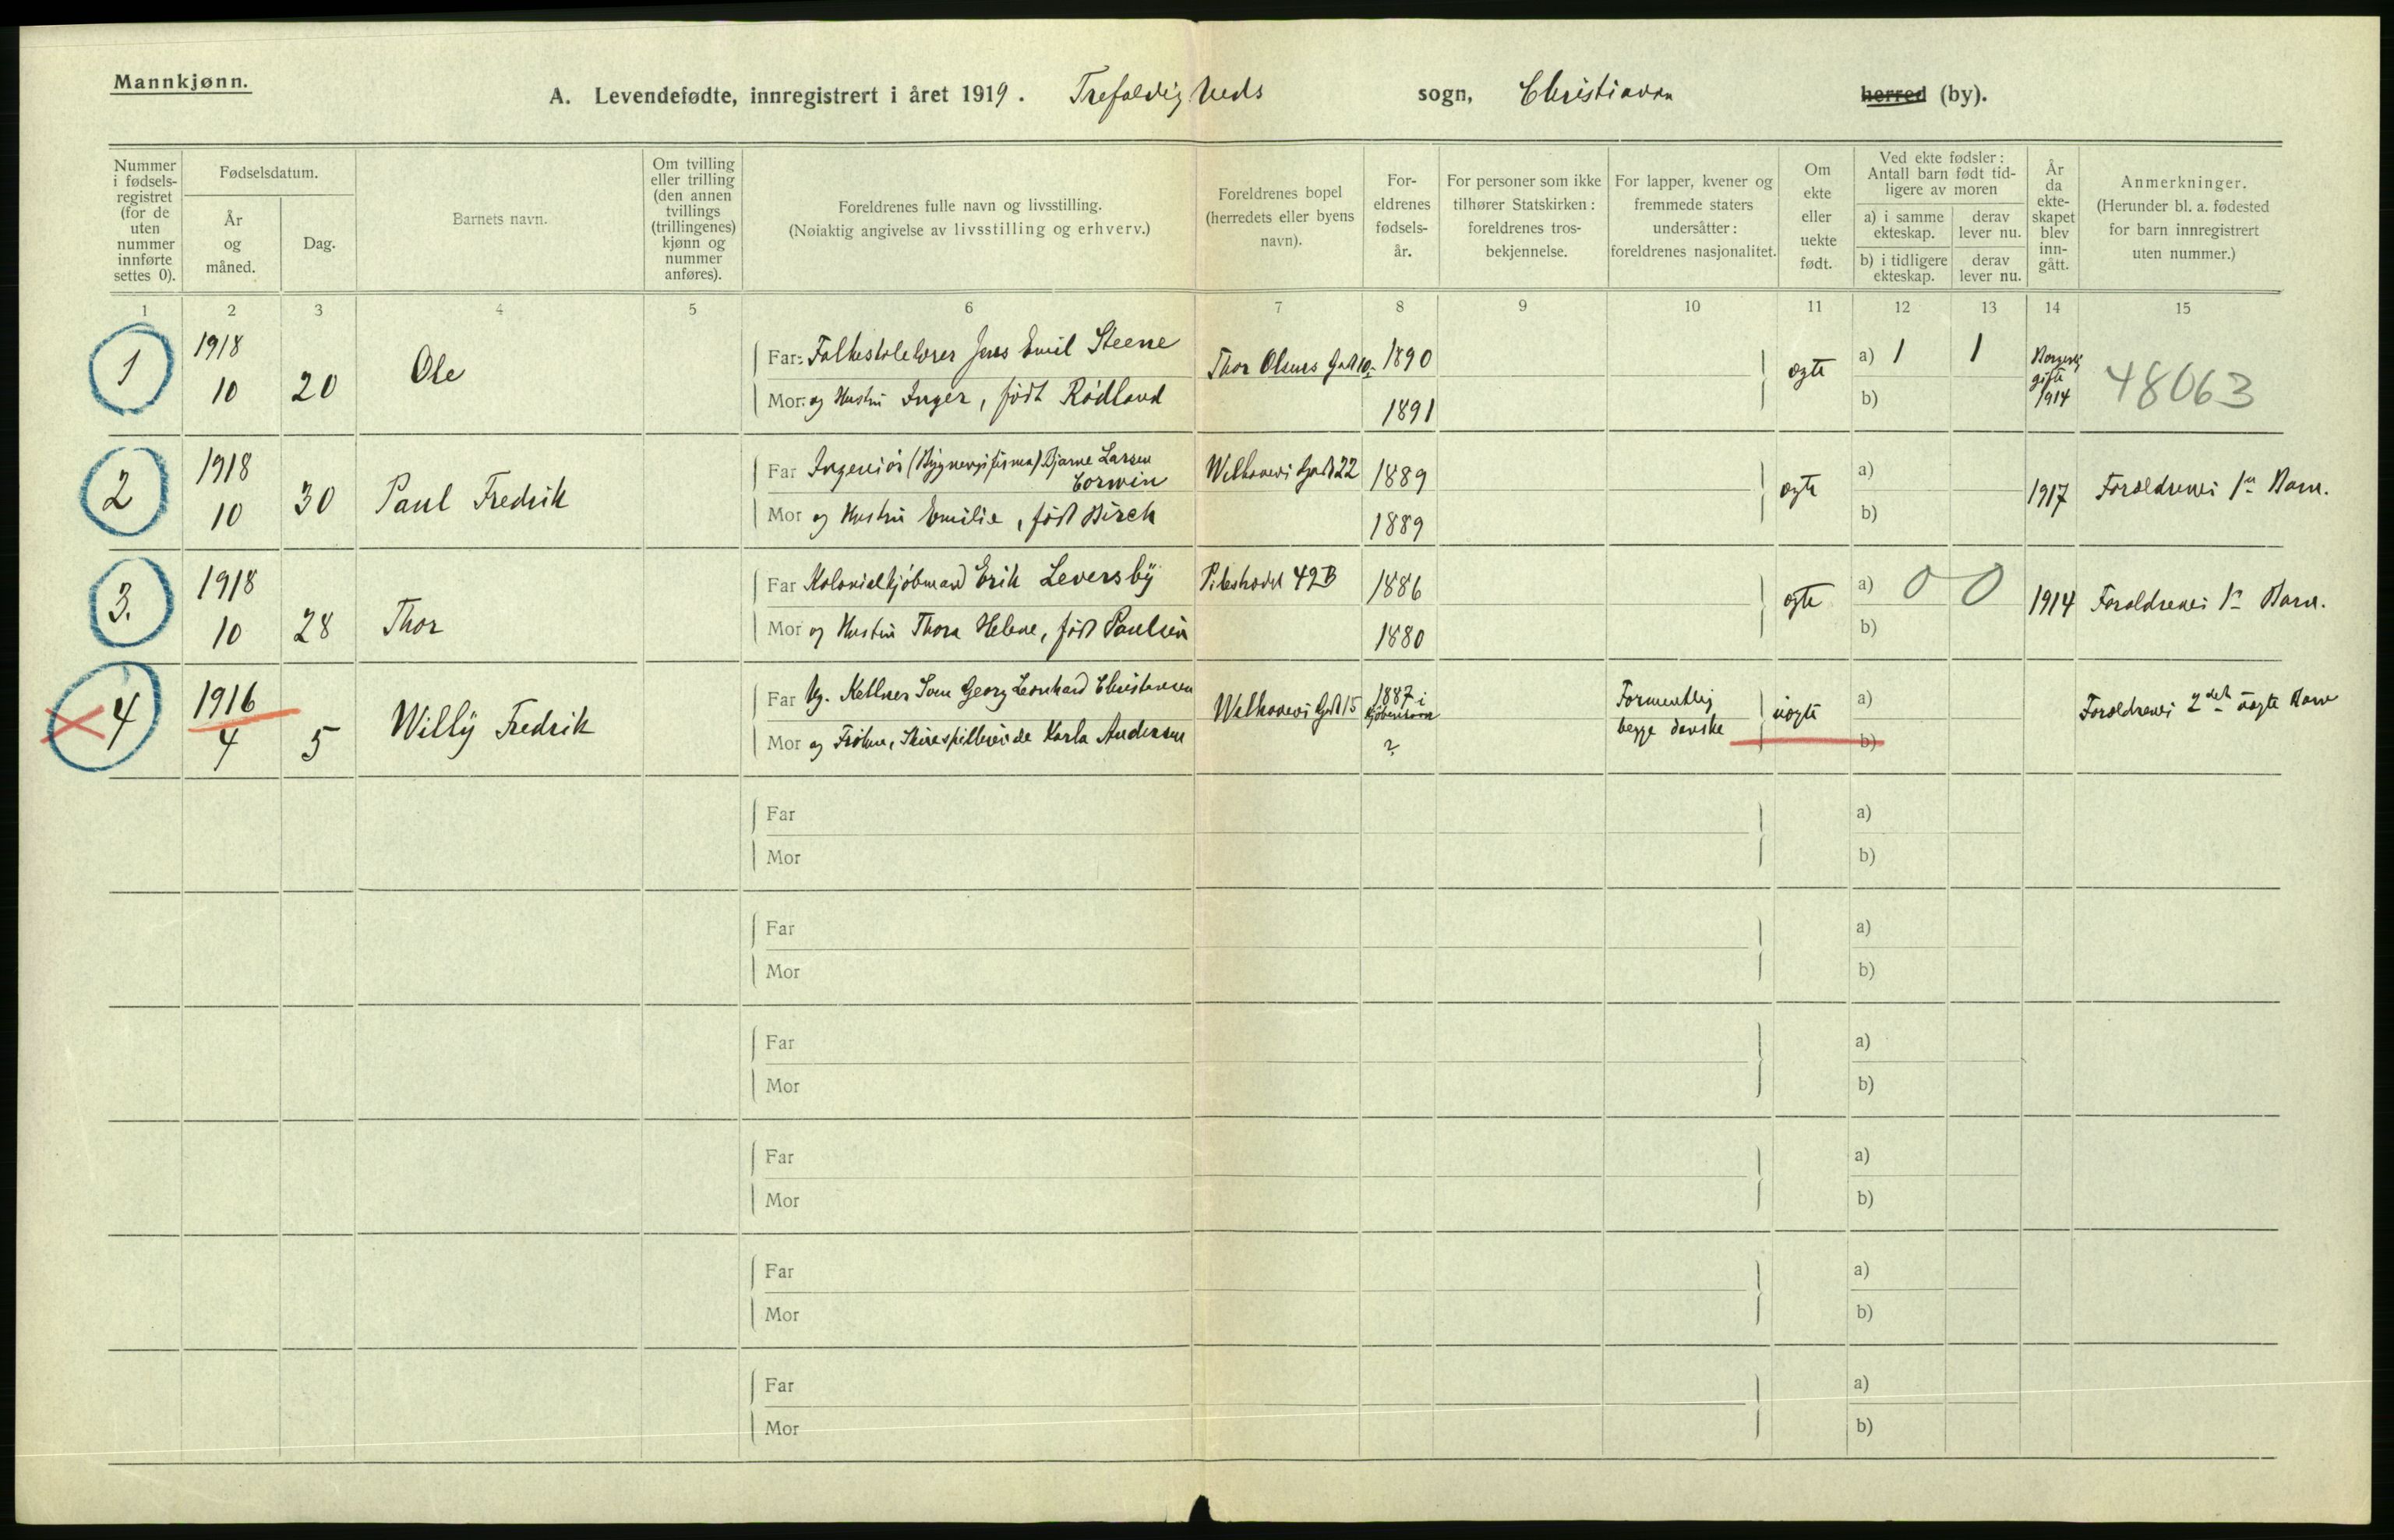 Mannkjønn.
A. Levendefødte, innregistrert i året 1919. Trefoldigheds sogn, Christiania herred (by).
Nummer i fødsels-registret (for de uten nummer innførte settes 0).
Fødselsdatum.
År og måned.
Dag.
Barnets navn.
Om tvilling eller trilling (den annen tvillings (trillingenes) kjønn og nummer anføres).
Foreldrenes fulle navn og livsstilling.
(Nøiaktig angivelse av livsstilling og erhverv.)
Foreldrenes bopel (herredets eller byens navn).
For-eldrenes fødsels-år.
For personer som ikke tilhører Statskirken: foreldrenes tros-bekjennelse.
For lapper, kvener og fremmede staters undersåtter: foreldrenes nasjonalitet.
Om ekte eller uekte født.
Ved ekte fødsler: Antall barn født tid-ligere av moren
a) i samme ekteskap.
derav lever nu.
b) i tidligere ekteskap.
derav lever nu.
År da ekte-skapet blev inn-gått.
Anmerkninger.
(Herunder bl. a. fødested for barn innregistrert uten nummer.)
1 2 3 4 5 6 7 8 9 10 11 12 13 14 15
1 1918 10 20 Ole
Far: Folkeskolelærer Jens Emil Steene Thor Olsens Gade 10 1890 ægte a) 1 1
Mor: og Hustru Inger, født Rødland 1891 b) Borgerlig gifte 1914 48063
2 1918 10 30 Paul Fredrik
Far Ingeniör Bjarne Larsen Corwin Welhavens Gade 22 1889 ægte a)
Mor og Hustru Emilie, født Birch 1889 b) 1917 Forældrenes 1ste Barn.
3. 1918 10 28 Thor
Far Kolonialkjøbmand Erik Leversby Pilestrædet 49B 1886 ægte a) 0 0
Mor og Hustru Thora Helene, født Paulsen 1880 b) 1914 Forældrenes 1ste Barn.
4 1916 4 5 Willy Fredrik
Far Ug. Kellner Sven Georg Leonhard Christensen Welhavens Gade 15 1887 i Kjøbenhavn Formentlig begge danske uægte a)
Mor og Frøken, Skuespillerinde Karla Andersen ? b) Forældrenes 2det uægte Barn
Far a)
Mor b)
Far a)
Mor b)
Far a)
Mor b)
Far a)
Mor b)
Far a)
Mor b)
Far a)
Mor b)